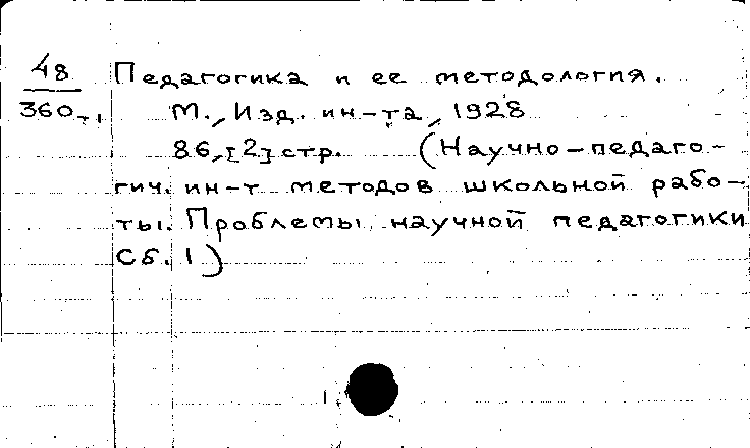 48 Педагогика и ее методология.
360-1 М., Изд. ин-та, 1928
86,[2]стр. (Научно-педаго-
гич. ин-т методов школьной рабо-
ты. Проблемы научной педагогики
Сб. 1)